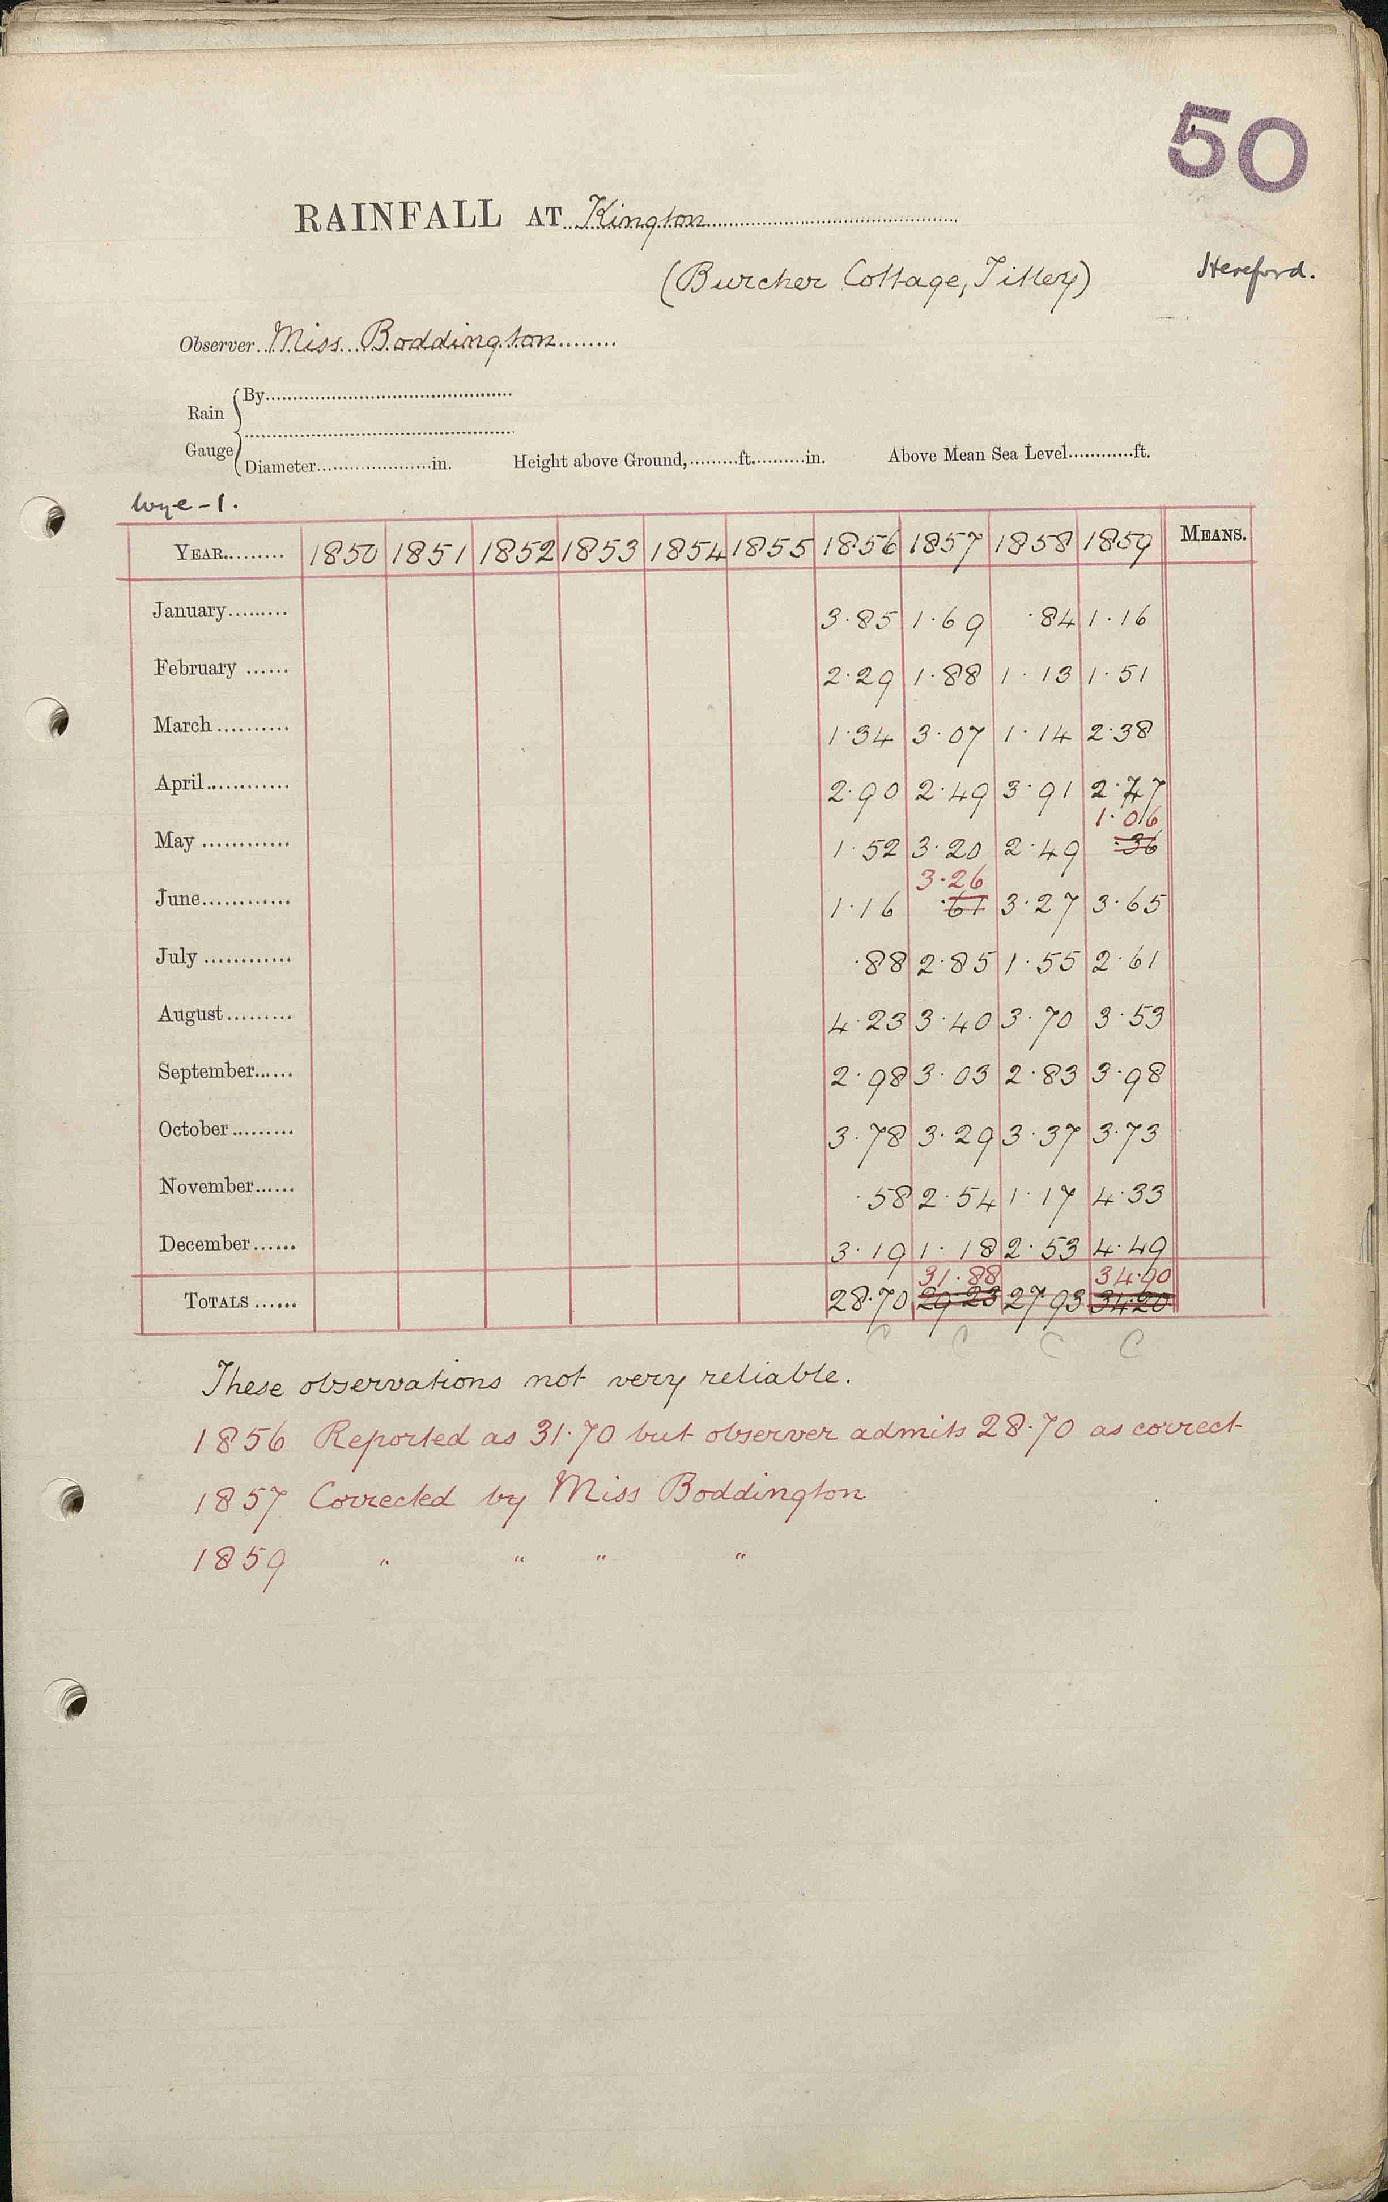 50
RAINFALL AT Kington
(Burcher Cottage, Titley) Hereford.
Observer Miss Boddington
Rain Gauge By
Diameter in. Height above Ground, ft. in. Above Mean Sea Level ft.
Wye - 1.
YEAR 1850 1851 1852 1853 1854 1855 1856 1857 1858 1859 MEANS.
January 3.85 1.69 .84 1.16
February 2.29 1.88 1.13 1.51
March 1.34 3.07 1.14 2.38
April 2.90 2.49 3.91 2.47
1.06
May 1.52 3.20 2.49 .36
3.26
June 1.16 .61 3.27 3.65
July .88 2.85 1.55 2.61
August 4.23 3.40 3.70 3.53
September 2.98 3.03 2.83 3.98
October 3.78 3.29 3.37 3.73
November .58 2.54 1.17 4.33
December 3.19 1.18 2.53 4.49
31.88 34.90
TOTALS 28.70 29.23 27.93 34.20
C C C C
These observations not very reliable.
1856 Reported as 31.70 but observer admits 28.70 as correct
1857 Corrected by Miss Boddington
1859 " " " "